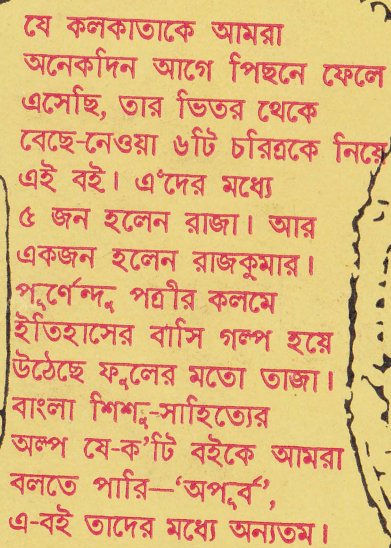 যে কলকাতাকে আমরা
অনেকদিন আগে পিছনে ফেলে
এসেছি, তার ভিতর থেকে
বেছে-নেওয়া ৬টি চরিত্রকে নিয়ে
এই বই। এঁদের মধ্যে
৫ জন হলেন রাজা। আর
একজন হলেন রাজকুমার।
পূর্ণেন্দু পত্রীর কলমে
ইতিহাসের বাসি গল্প হয়ে
উঠেছে ফুলের মতো তাজা।
বাংলা শিশু-সাহিত্যের
অল্প যে-ক'টি বইকে আমরা
বলতে পারি—'অপূর্ব',
এ-বই তাদের মধ্যে অন্যতম।